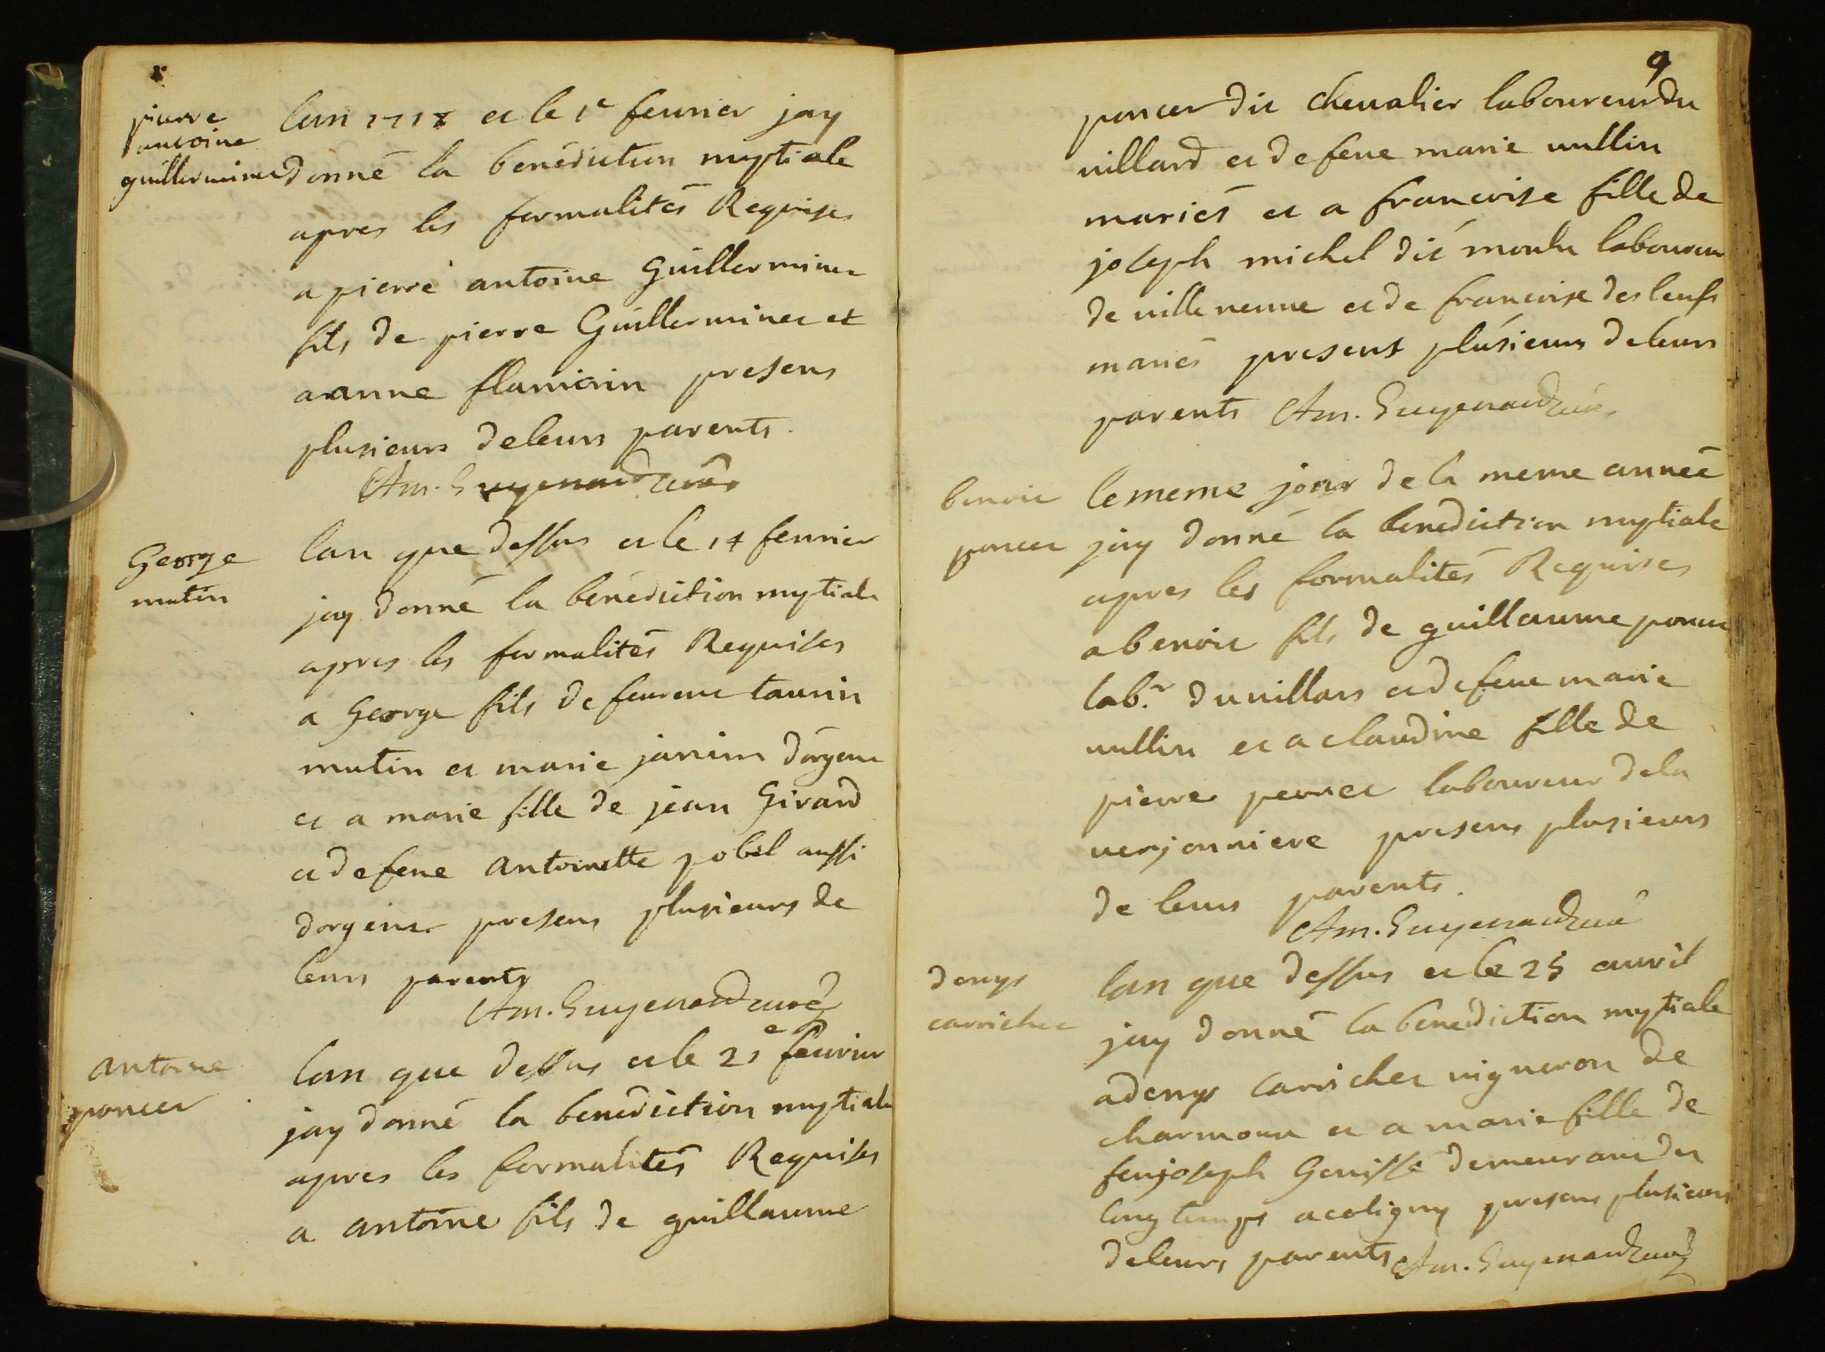 8
pierre
antoine
guillerminet
lan 1718 et le 1e feurier jay
donné la benédiction nuptiale
apres les formalités Requises
a pierre antoine Guilleminet
fils de pierre Guillerminet et
a anne presens
plusieurs deleurs parents.
Am. Guyenard curé
George
mutin
lan que dessus et le 14 feurier
jay donné la bénédiction nuptiale
apres les formalités Requises
a George fils de
mutin et marie janin dorgent
et a marie fille de jean Girard
et defeue antoinette jobel aussi
presens plusieurs de
leurs parents
Am. Guyenard curé
antoine
poncet
lan que dessus et le 21e feurier
jay donné la benediction nuptiale
apres les formalités Requises
a antoine fils de guillaume
9
poncet dit cheualier laboureur du
uillard et defeue marie uullin
mariés et a francoise fille de
joseph michel dit laboureur
de uilleneuue et de francoise
mariés present plusieurs deleurs
parents Am. Guyenard curé
benoit
poncet
lememe jour de la meme année
jay donné la benediction nuptiale
apres les formalités Requises
a benoit fils de guillaume poncet
labr. du uillars et defeue marie
uullin et a claudine fille de
pierre perret laboureur dela
uerjonniere presens plusieurs
de leurs parents.
Am. Guyenard curé
denys
carrichet
lan que dessus et le 25 auril
jay donné la benediction nuptiale
a denys carrichet uigneron de
charmoux et a marie fille de
feu joseph Genisse demeurant du
long temps a coligny presens plusieurs
deleurs parents Am. Guyenard curé